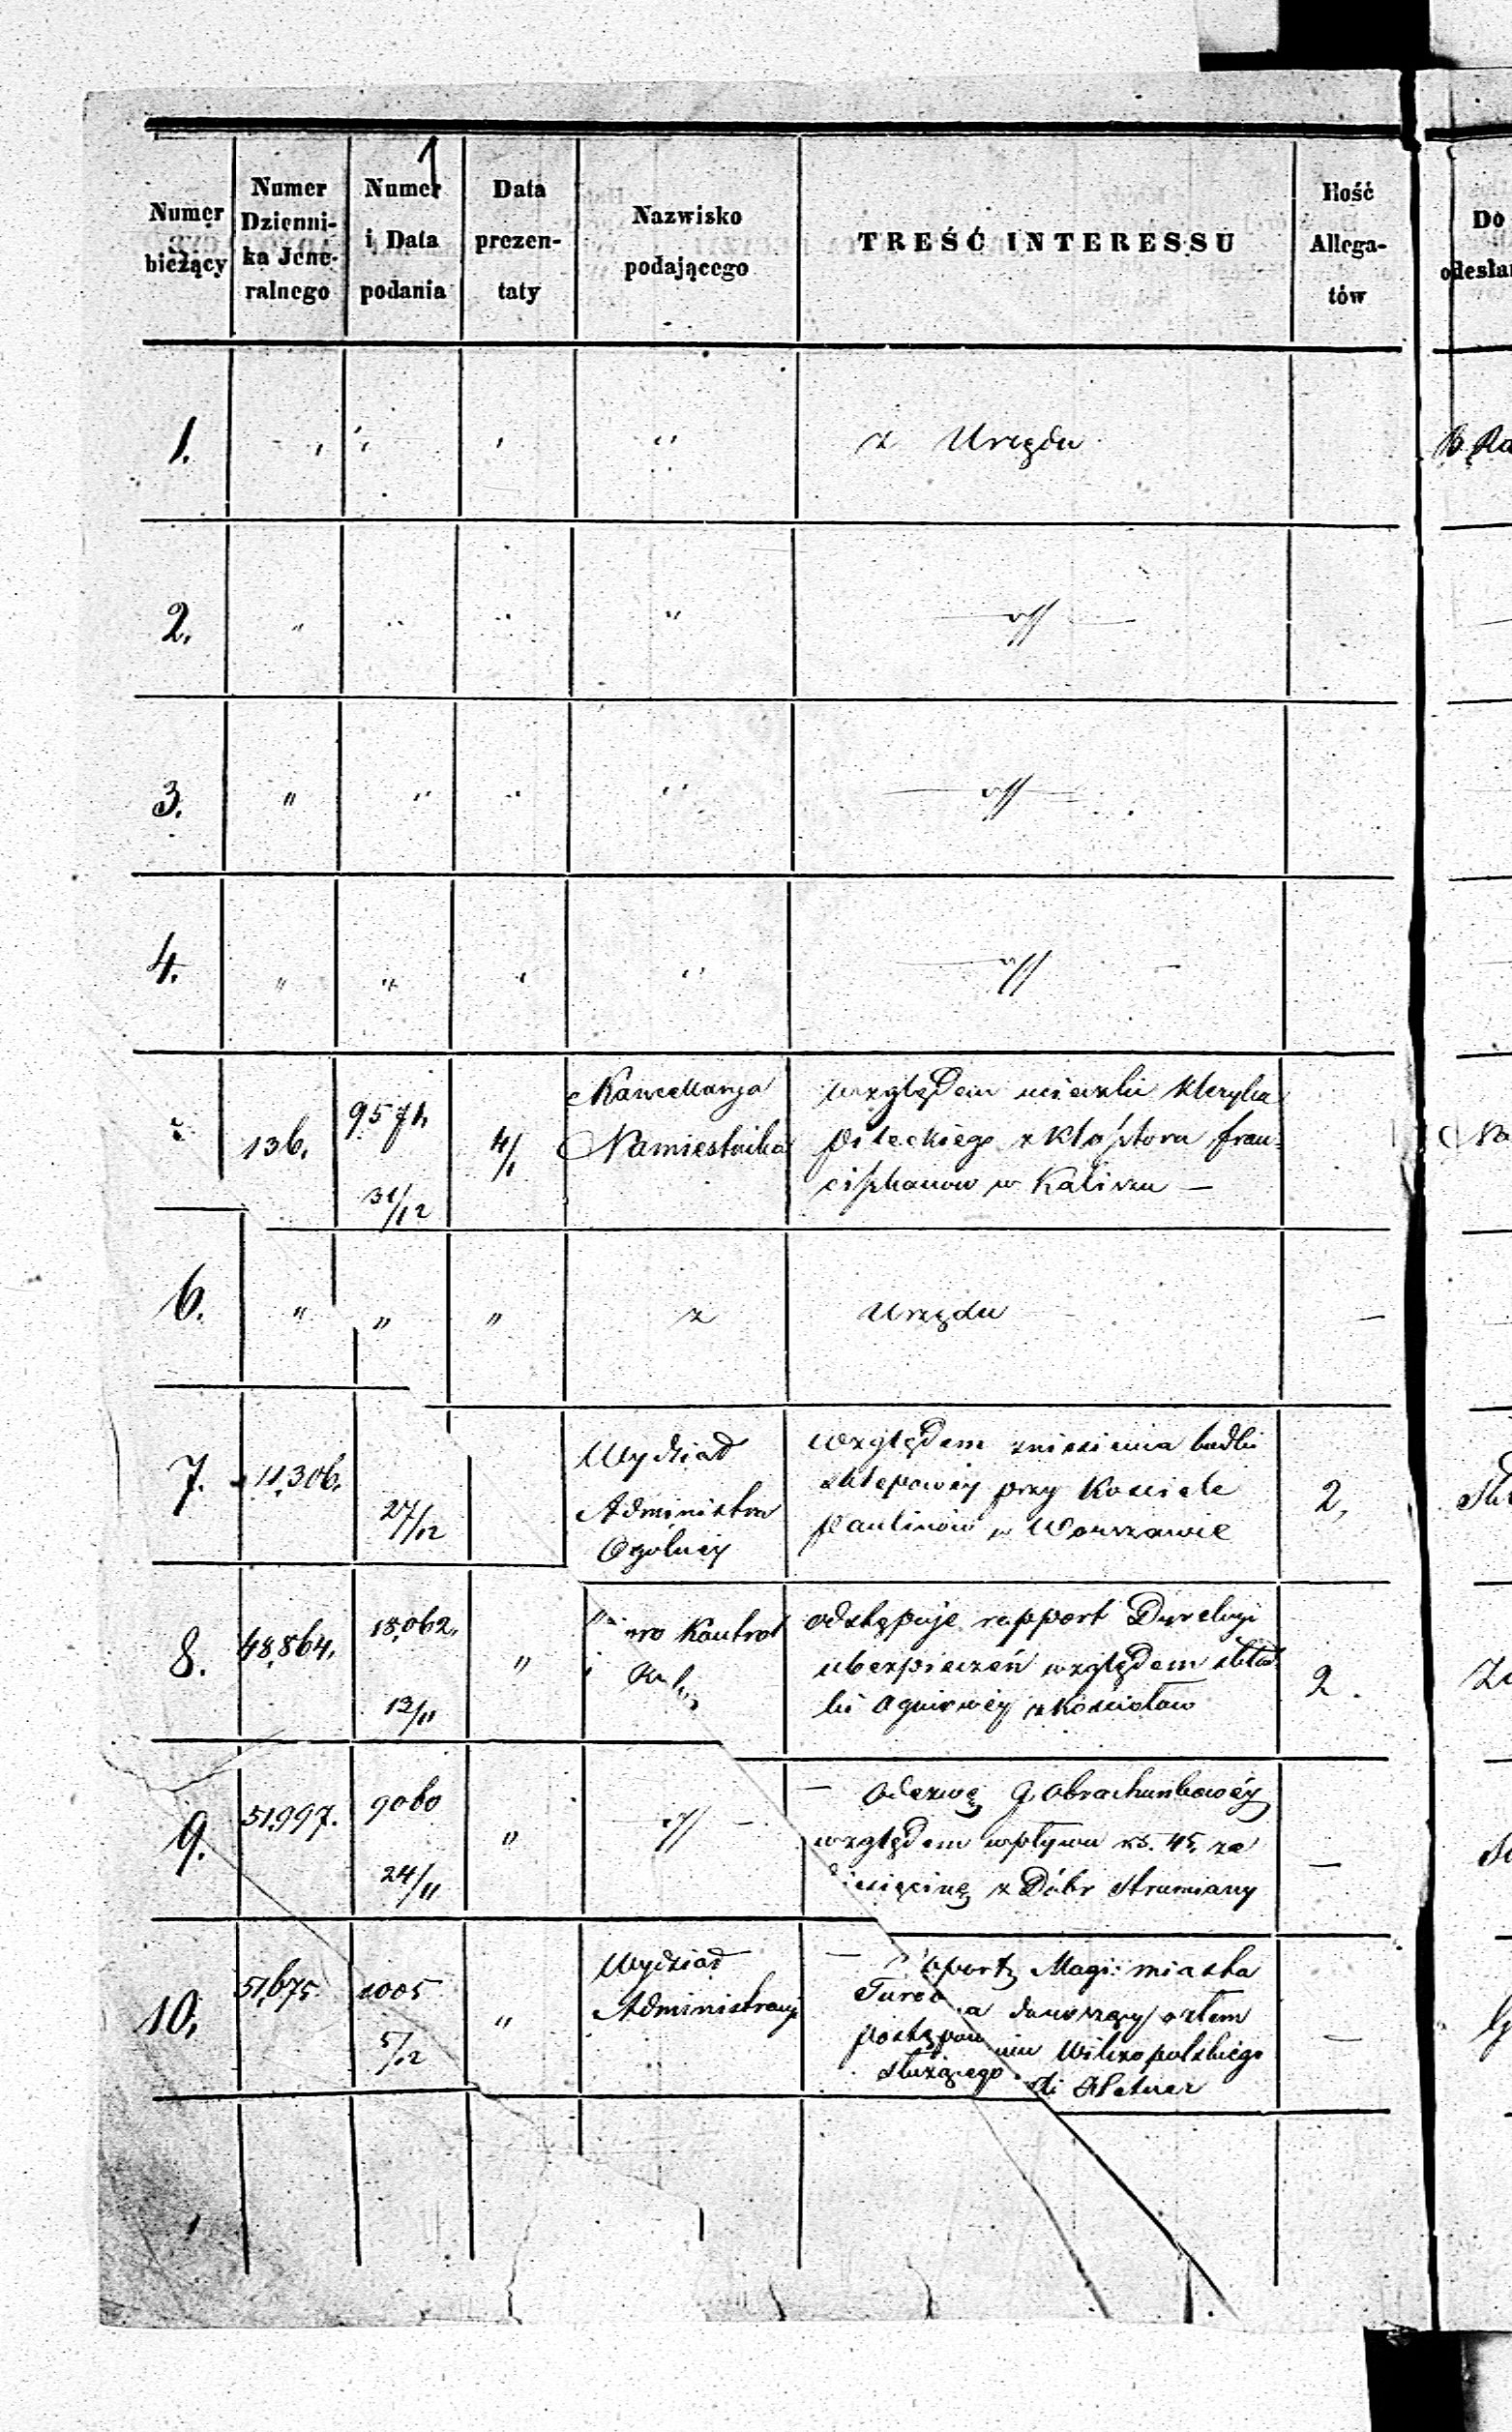 1
Numer bieżący
Numer Dzienni-
ka Jene-
ralnego
Numer i Data podania
Data prezen-
taty
Nazwisko podającego
TREŚĆ INTERESSU
Ilość Allega-
tów
Do
odesła
1. " " " " z Urzędu
2. " " " "
3. " " " "
4. " " " "
136. 9571. 31/12 4/1
Kancellarya
Namiestnika
względem ucieczki kleryka
Piteckiego z Klasztoru fran-
ciszkanow w Kaliszu —
6. " " " z Urzędu —
7. 11,306. 27/12
Wydział
Administra
Ogólnéj
względem zniesienia budki
sklepowéj przy Kosciele
Paulinów w Warszawie
2,
8. 48,864. 18,062. 13/11 "
Kontrol
odstępuje rapport Dyrekcyi
ubezpieczeń względem skład
ki Ogniowéj z Kosciołow
2.
9. 51,997. 9060 24/11 "
— Odezwę Obrachunkowéj
względem wpływu rs. 45. za
z Dóbr Strumiany
—
10. 51,675. 1005 5/12 "
Wydział
Administracyi
— Magi: miasta
donoszący o złem
Wilczopolskiego
służącego
—